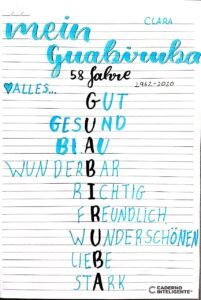 CLARA
mein
Guabiruba
58 Jahre
1962-2020
ALLES...
GUT
GESUND
BLAU
WUNDERBAR
RICHTIG
FREUNDLICH
WUNDERSCHÖNEN
LIEBE
STARK
CADERNO
INTELIGENTE